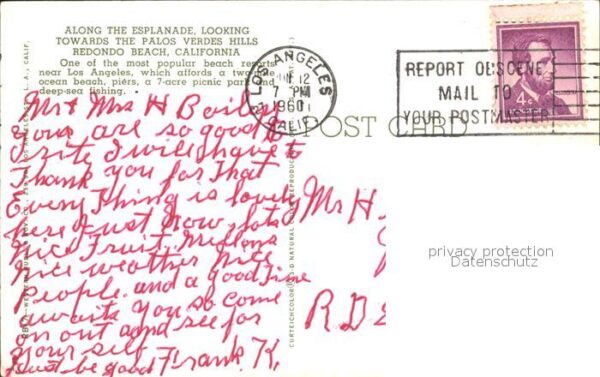 ALONG THE ESPLANADE, LOOKING
TOWARDS THE PALOS VERDES HILLS
REDONDO BEACH, CALIFORNIA
One of the most popular beach resorts
near Los Angeles, which affords a two-mile
ocean beach, piers, a 7-acre picnic park and
deep-sea fishing.
LOS ANGELES
12
7 PM
1960
CALIF.
REPORT OBSCENE
MAIL TO
YOUR POSTMASTER
4¢
POST CARD
Mr & Mrs H
Your are so good to
write I will have to
Thank you for That
Every Thing is lovely
here Just now, lots
nice Fruit, Mellons
nice weather nice
People and a good Time
awaits you so come
on out and see for
your self
Just be good Frank. K,
Mr H.
R.D
privacy protection
Datenschutz